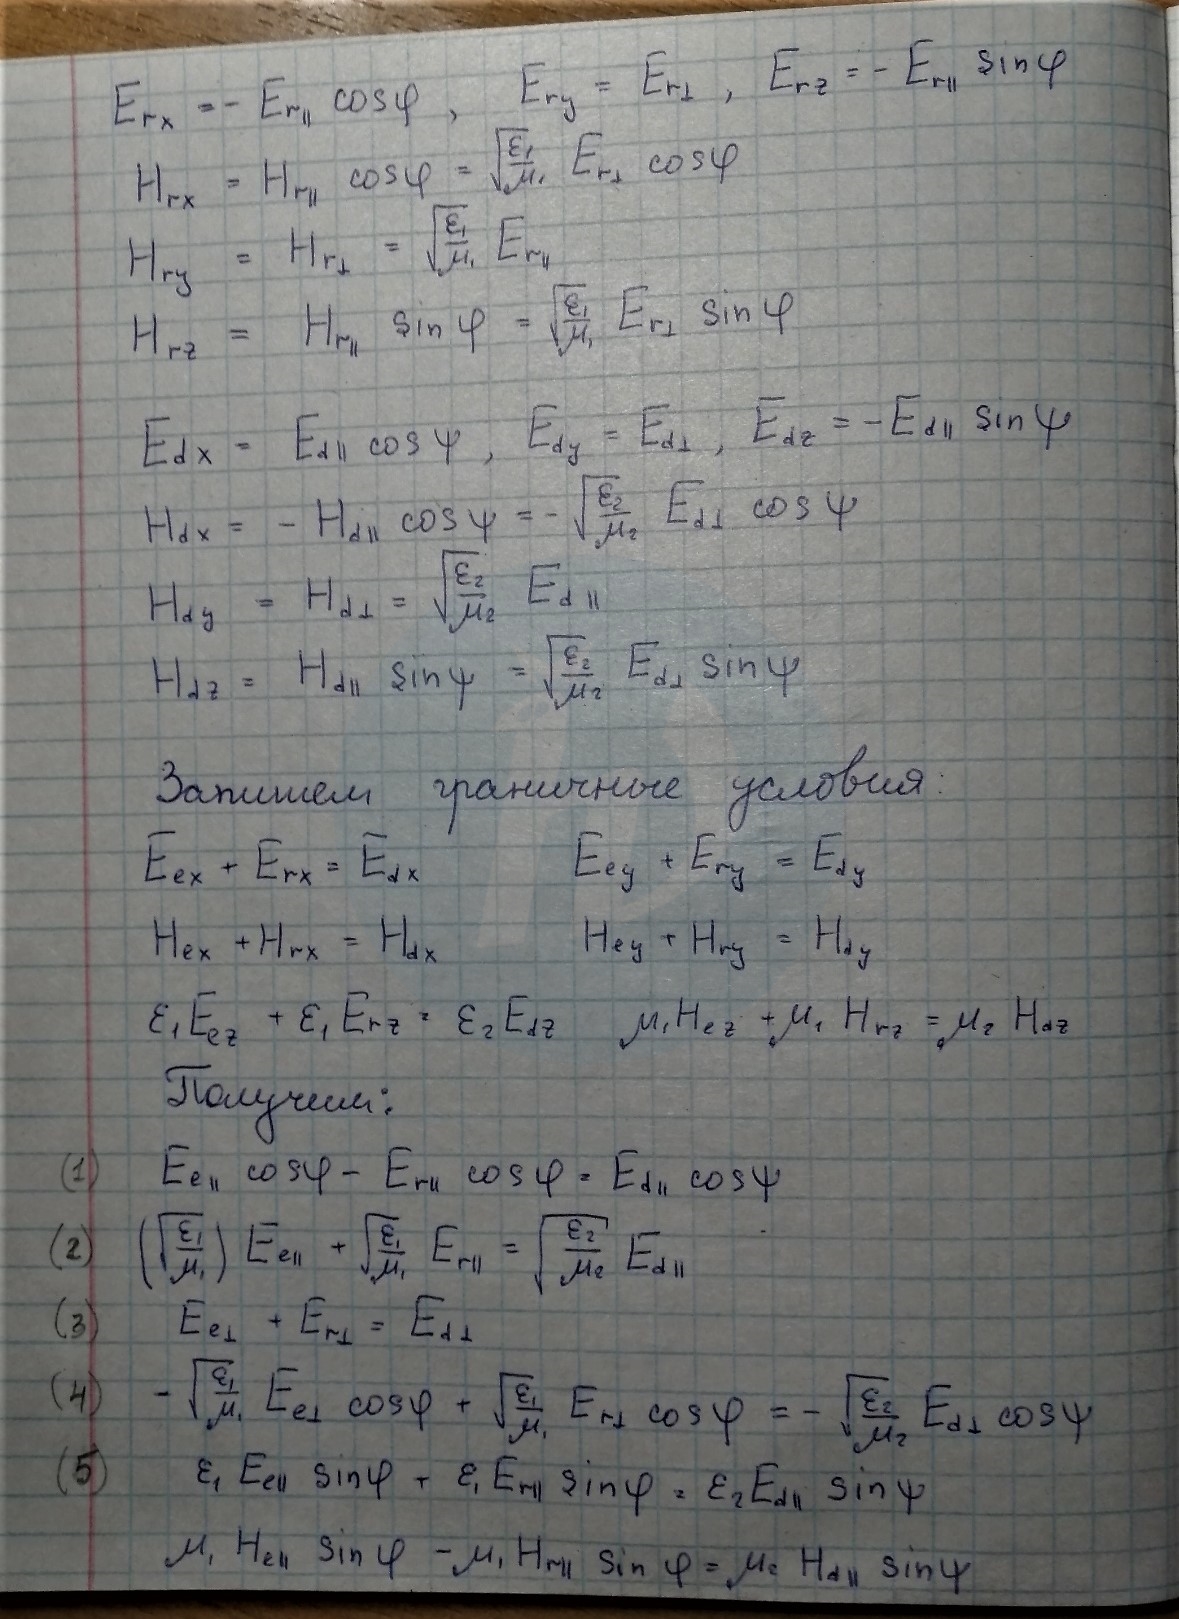 Erx = - Er|| cosφ , Ery = Er⊥ , Erz = - Er|| sinφ
Hrx = Hr|| cosφ = √(ε₁/μ₁) Er⊥ cosφ
Hry = Hr⊥ = √(ε₁/μ₁) Er||
Hrz = Hr|| sinφ = √(ε₁/μ₁) Er⊥ sinφ
Edx = Ed|| cosψ , Edy = Ed⊥ , Edz = - Ed|| sinψ
Hdx = - Hd|| cosψ = - √(ε₂/μ₂) Ed⊥ cosψ
Hdy = Hd⊥ = √(ε₂/μ₂) Ed||
Hdz = Hd|| sinψ = √(ε₂/μ₂) Ed⊥ sinψ
Запишем граничные условия:
Eex + Erx = Edx Eey + Ery = Edy
Hex + Hrx = Hdx Hey + Hry = Hdy
ε₁Eez + ε₁Erz = ε₂Edz μ₁Hez + μ₁Hrz = μ₂Hdz
Получим:
(1) Ee|| cosφ - Er|| cosφ = Ed|| cosψ
(2) (√(ε₁/μ₁)) Ee|| + √(ε₁/μ₁) Er|| = √(ε₂/μ₂) Ed||
(3) Ee⊥ + Er⊥ = Ed⊥
(4) - √(ε₁/μ₁) Ee⊥ cosφ + √(ε₁/μ₁) Er⊥ cosφ = - √(ε₂/μ₂) Ed⊥ cosψ
(5) ε₁Ee|| sinφ + ε₁Er|| sinφ = ε₂Ed|| sinψ
μ₁ He|| sinφ - μ₁Hr|| sinφ = μ₂ Hd|| sinψ